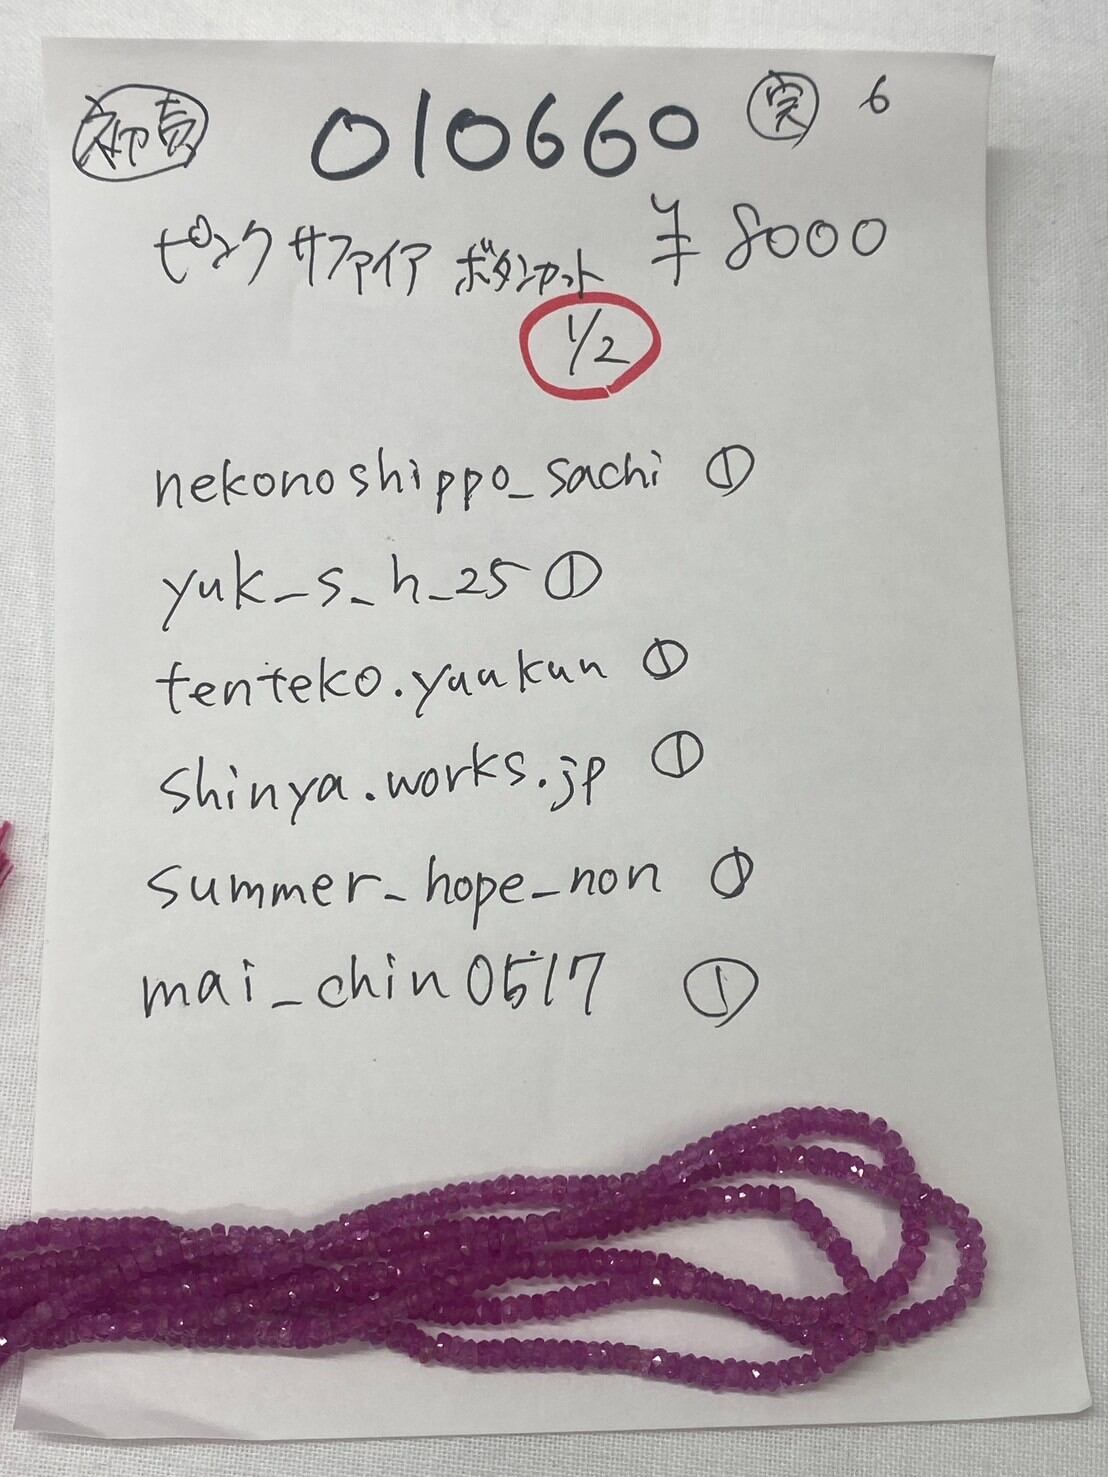 010660 実 6
ピンクサファイア ボタンカット ¥8000
1/2
nekonoshippo_sachi ①
yuk_s_h_25 ①
tenteko.yuukun ①
shinya.works.jp ①
summer_hope_non ①
mai_chin0517 ①